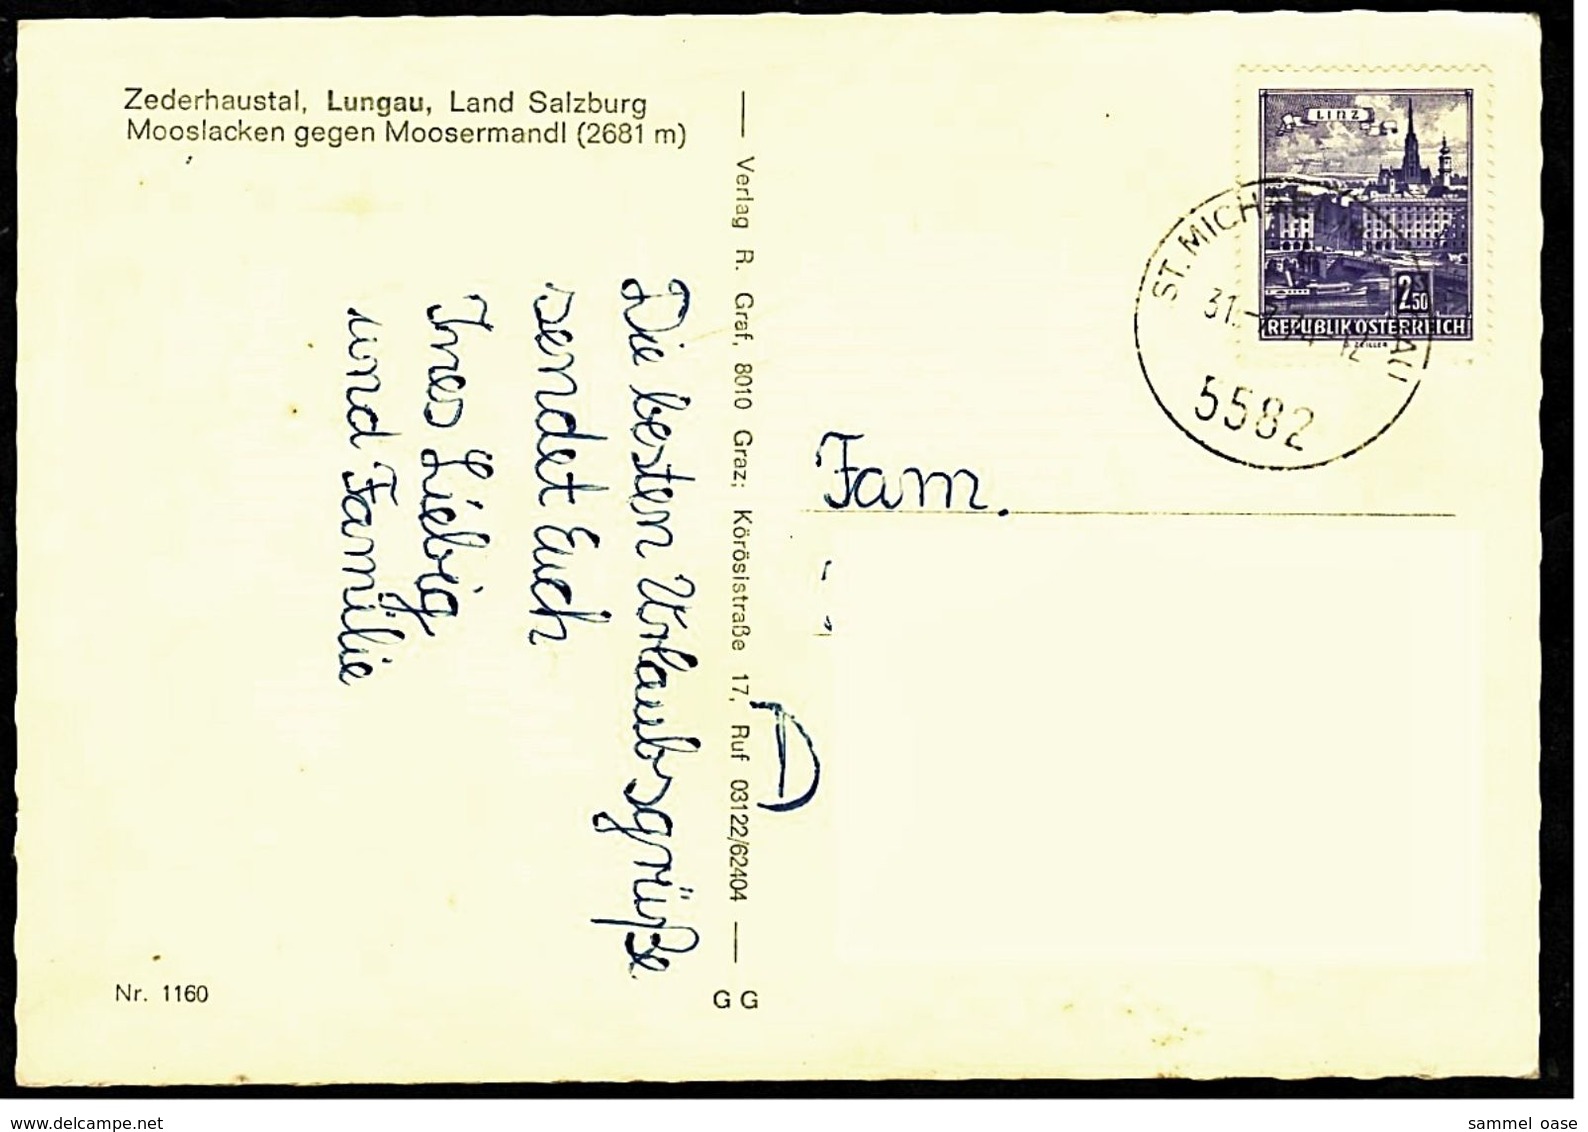 Zederhaustal, Lungau, Land Salzburg
Mooslacken gegen Moosermandl (2681 m)
Die besten Urlaubsgrüße
sendet Euch
Ines Liebig
und Familie
Verlag R. Graf, 8010 Graz; Körösistraße 17, Ruf 03122/62404
Nr. 1160
G G
LINZ
2.50
S
REPUBLIK ÖSTERREICH
ZEILLER
ST. MICHAEL
31.
12
5582
Fam.
D
www.delcampe.net
sammel_oase